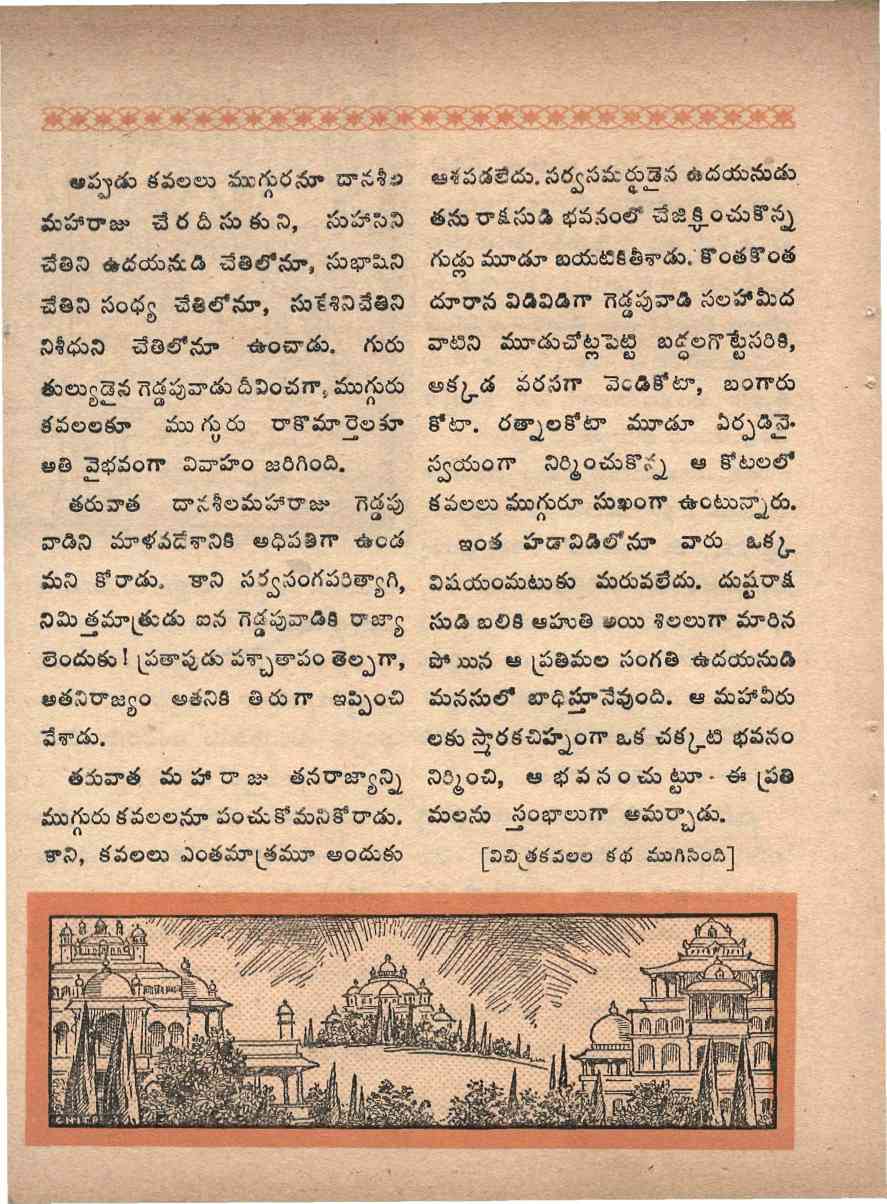 అప్పుడు కవలలు ముగ్గురనూ దానశీల
మహారాజు చేరదీసుకుని, సుహాసిని
చేతిని ఉదయనుడి చేతిలోనూ, సుభాషిని
చేతిని సంధ్య చేతిలోనూ, సుకేశినిచేతిని
నిశీధుని చేతిలోనూ ఉంచాడు. గురు
తుల్యుడైన గెడ్డపువాడు దీవించగా, ముగ్గురు
కవలలకూ ముగ్గురు రాకొమార్తెలకూ
అతి వైభవంగా వివాహం జరిగింది.
తరువాత దానశీలమహారాజు గెడ్డపు
వాడిని మాళవదేశానికి అధిపతిగా ఉండ
మని కోరాడు. కాని సర్వసంగపరిత్యాగి,
నిమిత్తమాత్రుడు ఐన గెడ్డపువాడికి రాజ్యా
లెందుకు! ప్రతాపుడు పశ్చాతాపం తెల్పగా,
అతనిరాజ్యం అతనికి తిరుగా ఇప్పించి
వేశాడు.
తరువాత మహారాజు తనరాజ్యాన్ని
ముగ్గురు కవలలనూ పంచుకోమనికోరాడు.
కాని, కవలలు ఎంతమాత్రమూ అందుకు
ఆశపడలేదు. సర్వసమర్థుడైన ఉదయనుడు
తను రాక్షసుడి భవనంలో చేజిక్కించుకొన్న
గుడ్లు మూడూ బయటికితీశాడు. కొంతకొంత
దూరాన విడివిడిగా గెడ్డపువాడి సలహామీద
వాటిని మూడుచోట్లపెట్టి బద్ధలగొట్టేసరికి,
అక్కడ వరసగా వెండికోటా, బంగారు
కోటా. రత్నాలకోటా మూడూ ఏర్పడినై.
స్వయంగా నిర్మించుకొన్న ఆ కోటలలో
కవలలు ముగ్గురూ సుఖంగా ఉంటున్నారు.
ఇంత హడావిడిలోనూ వారు ఒక్క
విషయంమటుకు మరువలేదు. దుష్టరాక్ష
సుడి బలికి ఆహుతి అయి శిలలుగా మారిన
పోయిన ఆ ప్రతిమల సంగతి ఉదయనుడి
మనసులో బాధిస్తూనేవుంది. ఆ మహావీరు
లకు స్మారకచిహ్నంగా ఒక చక్కటి భవనం
నిర్మించి, ఆ భవనంచుట్టూ - ఈ ప్రతి
మలను స్తంభాలుగా అమర్చాడు.
[విచిత్రకవలల కథ ముగిసింది]